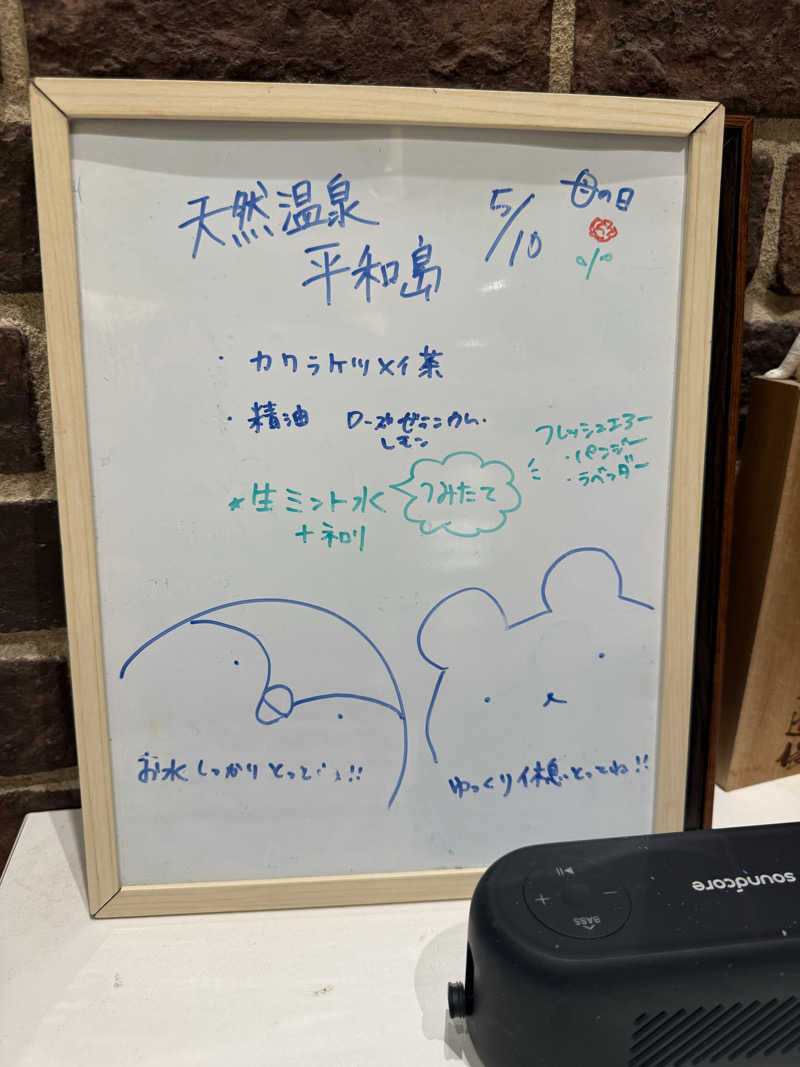 天然温泉
平和島
5/10
母の日
・カワラケツメイ茶
・精油 ローズゼラニウム.
レモン
フレッシュエアー
・パンジー
・ラベンダー
*生ミント水
つみたて
+ネロリ
お水しっかりとって
ゆっくり休憩とってね!!
soundcore
BASS